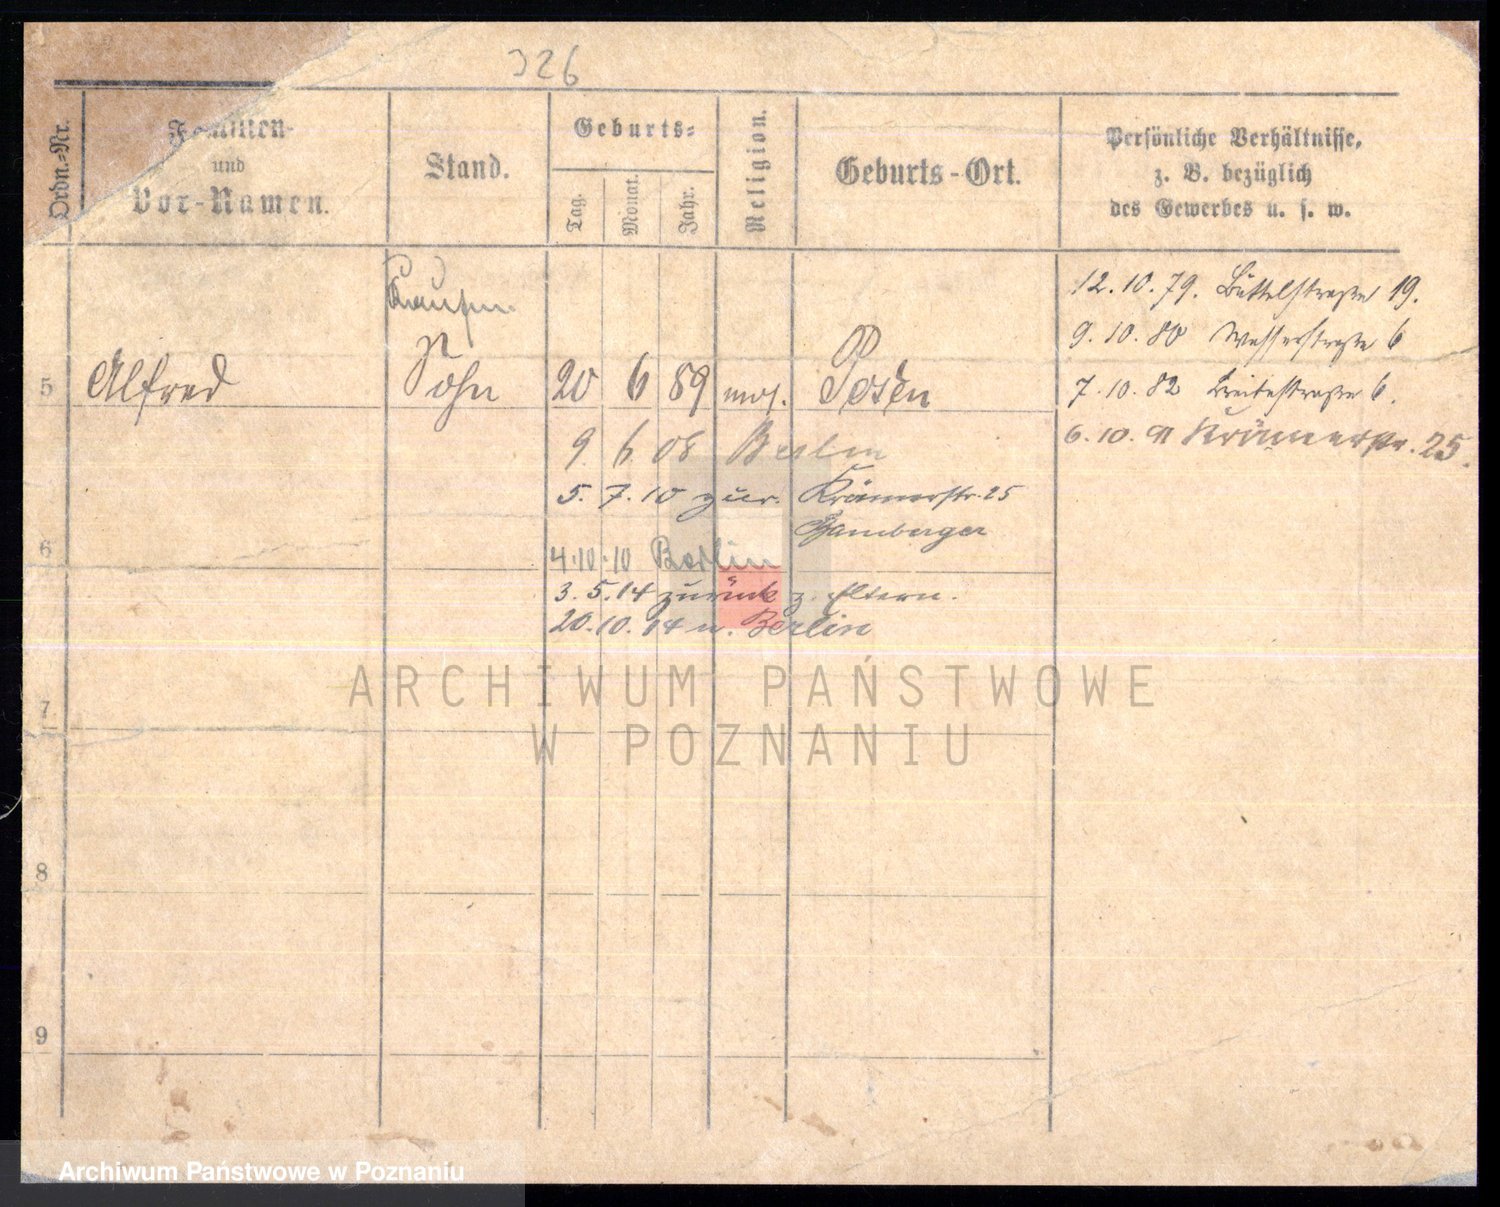 326
Ordn.-Nr.
Familien-
und
Vor-Namen.
Stand.
Geburts-
Tag.
Monat.
Jahr.
Religion.
Geburts-Ort.
Persönliche Verhältnisse,
z. B. bezüglich
des Gewerbes u. s. w.
12.10.79. Büttelstraße 19.
9.10.80 Wasserstraße 6
7.10.82 Breitestraße 6.
6.10.91 Krämerstr. 25.
Kaufm.
5 Alfred Sohn 20 6 89 mos. Posen
9. 6. 08 Berlin
5. 7. 10 zur. Krämerstr. 25
Hamburger
6
4.10.10 Berlin
3. 5. 14 zurück z. Eltern.
20.10.14 n. Berlin
ARCHIWUM PAŃSTWOWE
W POZNANIU
7
8
9
Archiwum Państwowe w Poznaniu